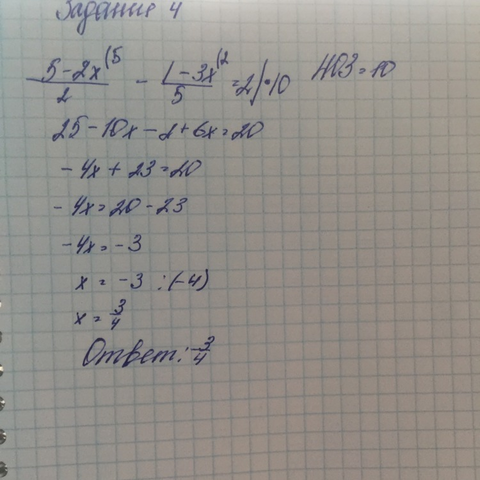 Задание 4
(5-2x)/2 (5 - (1-3x)/5 (2 = 2 |·10 НОЗ=10
25-10x-2+6x=20
-4x+23=20
-4x=20-23
-4x=-3
x = -3 :(-4)
x = 3/4
Ответ: 3/4